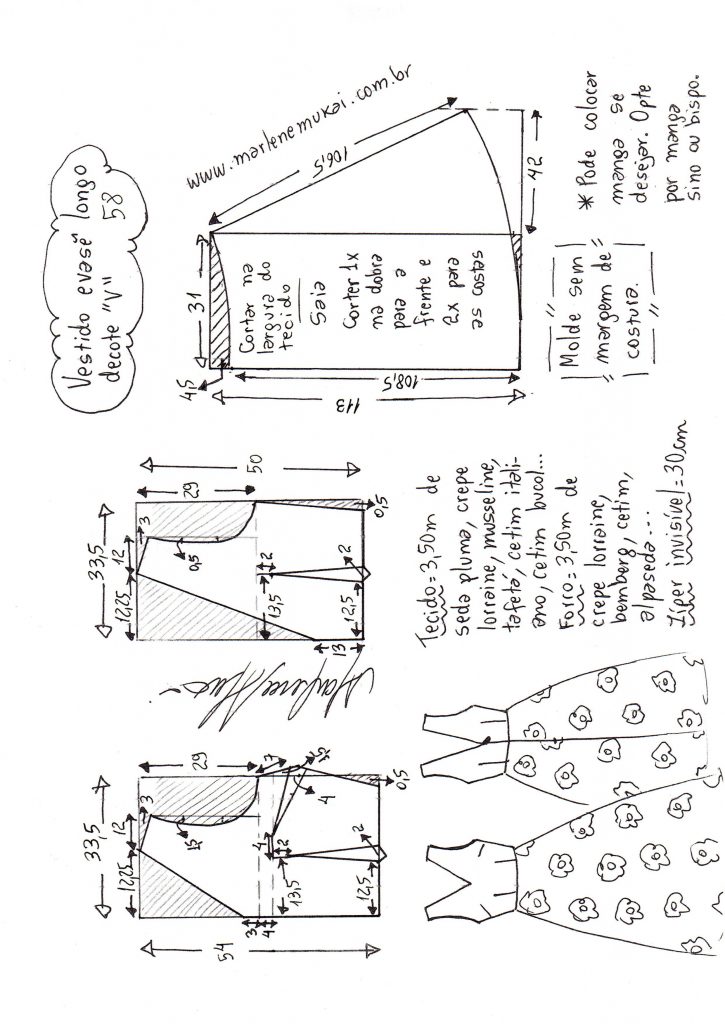 Vestido evasê longo
decote "V" 58
www.marlenemukai.com.br
54
33,5
12,25
12
3
29
1,5
7
4
4
2
13,5
3
4
12,5
2
0,5
33,5
12,25
12
3
29
50
0,5
2
13,5
13
12,5
2
0,5
4,5
31
106,5
Cortar na
largura do
tecido
Saia
Corter 1x
na dobra
para a
frente e
2x para
as costas
108,5
113
42
Tecido = 3,50m de
seda pluma, crepe
lorraine, musseline,
tafetá, cetim itáli-
ano, cetim bucol...
Forro = 3,50m de
crepe lorraine,
bemberg, cetim,
alpaseda...
Zíper invisível = 30cm
Molde sem
margem de
costura.
* Pode colocar
manga se
desejar. Opte
por manga
sino ou bispo.